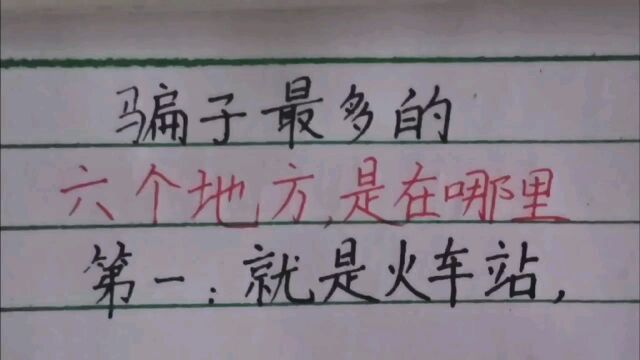 骗子最多的
六个地方,是在哪里
第一:就是火车站,